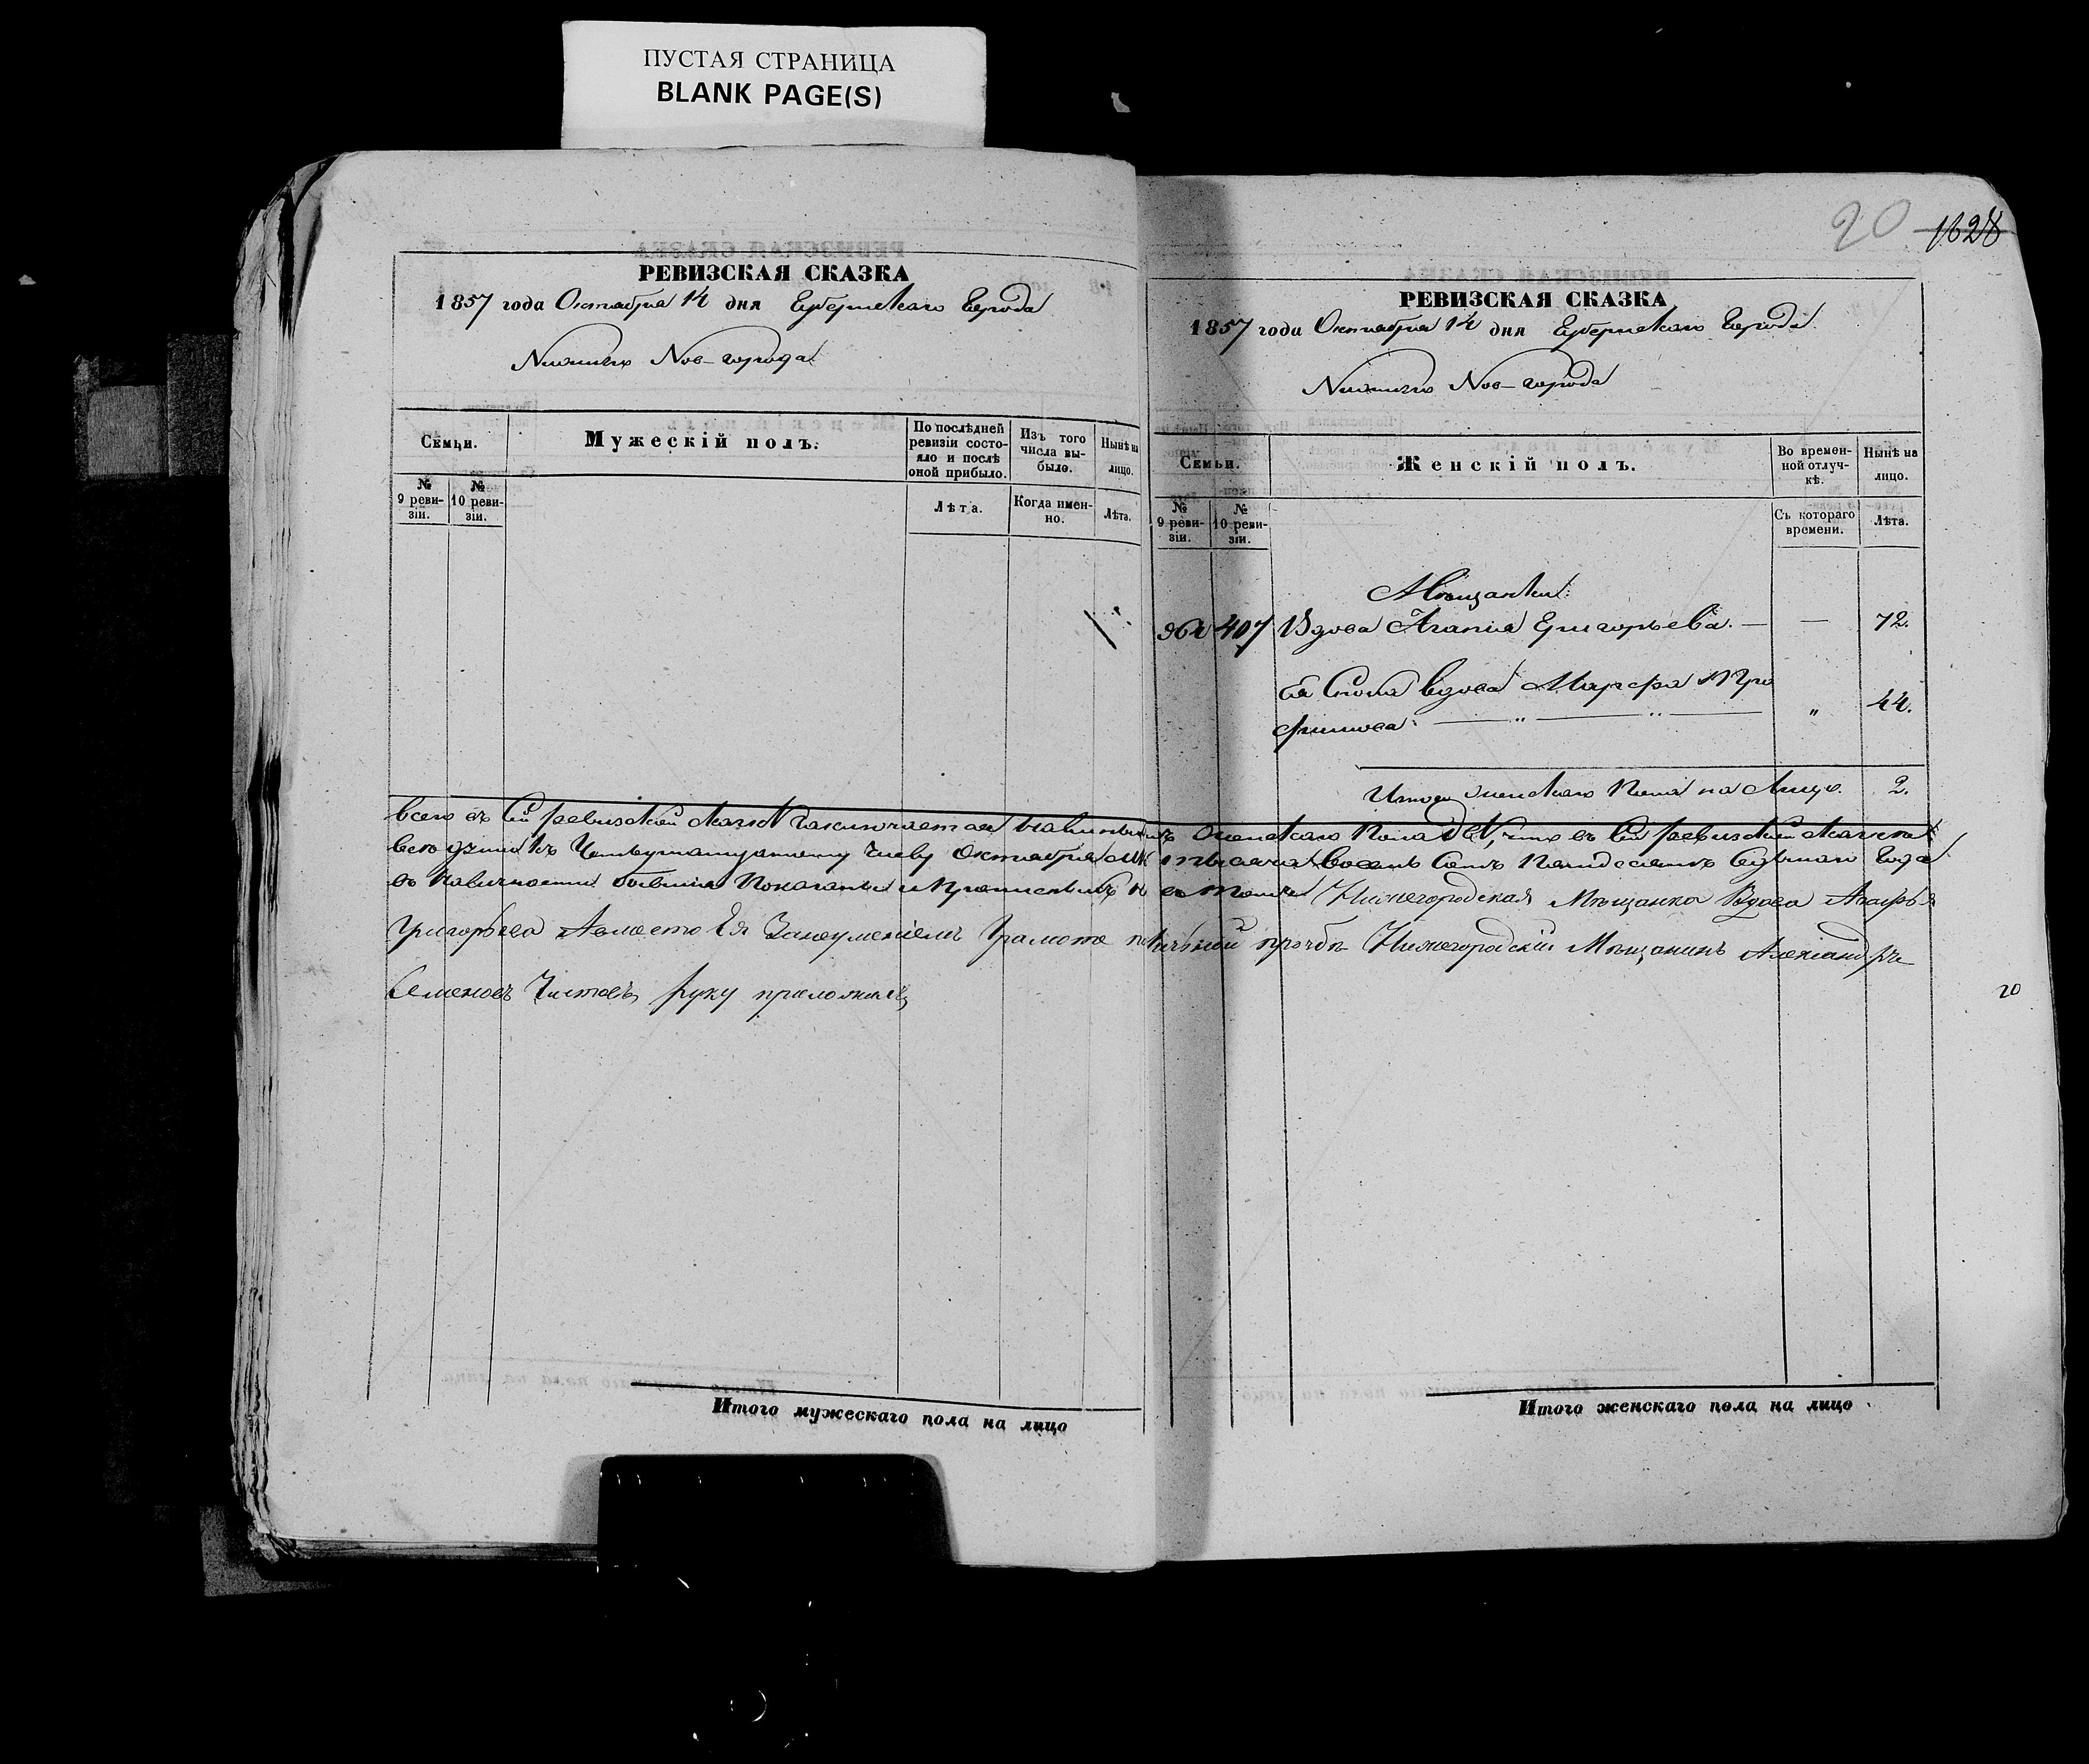 ПУСТАЯ СТРАНИЦА
BLANK PAGE(S)
РЕВИЗСКАЯ СКАЗКА
1857 года Октября 14 дня Губернскаго Города
Нижняго Нов-города
Семьи.
Мужескій полъ.
По послѣдней ревизіи состояло и послѣ оной прибыло.
Изъ того числа выбыло.
Нынѣ на лицо.
№ 9 ревизіи.
№ 10 ревизіи.
Лѣта.
Когда именно.
Лѣта.
20 1628
РЕВИЗСКАЯ СКАЗКА
1857 года Октября 14 дня Губернскаго Города
Нижняго Нов-города
Семьи.
Женскій полъ.
Во временной отлучкѣ.
Нынѣ на лицо.
№ 9 ревизіи.
№ 10 ревизіи.
Съ котораго времени.
Лѣта.
Мѣщанки:
407 Вдова Агапія Григорьева. — — 72.
Ея Сноха вдова Марфа Тро
фимова: — " — " — " 44.
Итого женскаго пола на Лицо. 2.
Всего въ сей ревизской сказкѣ заключается наличныхъ женскаго пола двѣ, что въ сей ревизской сказкѣ
всѣ души къ Четырнадцатому числу Октября тысяча восемь сотъ пятьдесятъ седьмаго года
въ наличности бывшія показаны и прописныхъ нѣтъ Нижегородская Мѣщанка Вдова
Григорьева Авместо Ея Занеуменіемъ Грамоте по личьной прозбѣ Нижегородскій Мѣщанинъ Александръ
Семеновъ Чистовъ руку приложилъ
20
Итого мужескаго пола на лицо
Итого женскаго пола на лицо